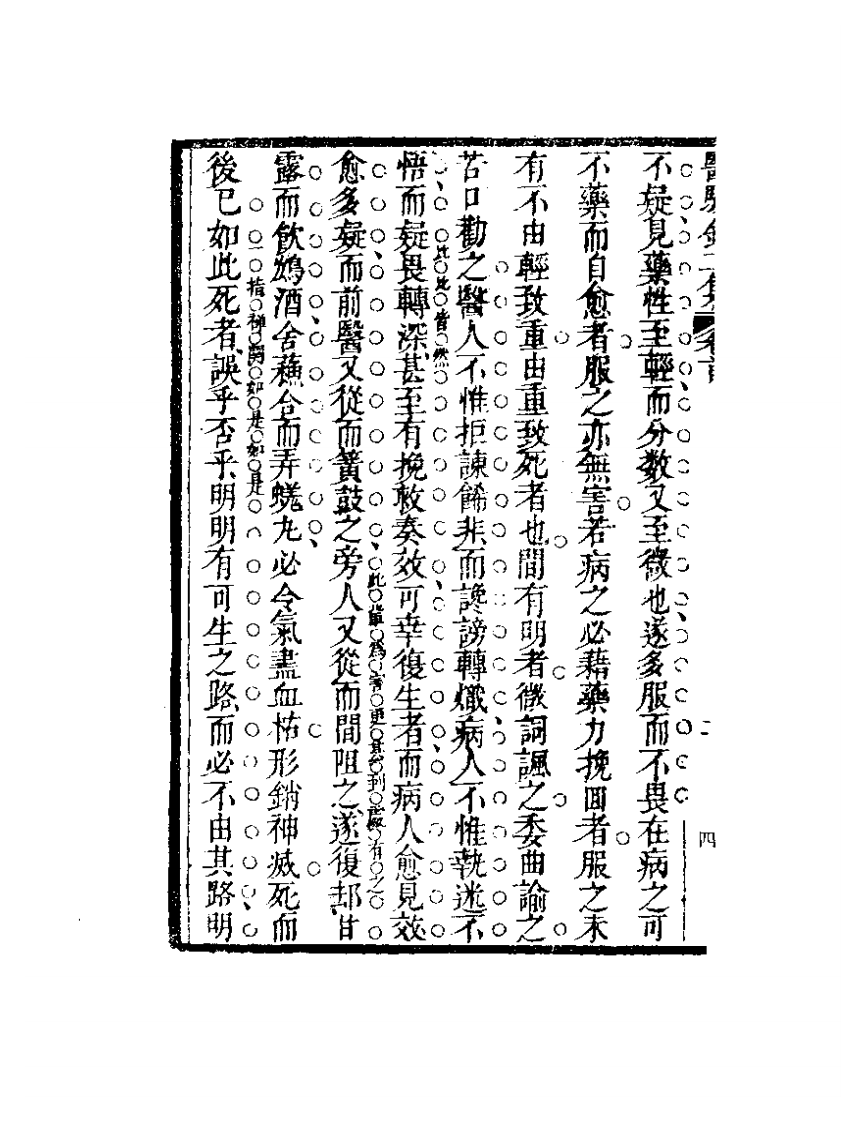 醫驗錄二集 卷首 二 四
不疑見藥性至輕而分數又至微也遂多服而不畏在病之可
不藥而自愈者服之亦無害若病之必藉藥力挽回者服之未
有不由輕致重由重致死者也間有明者微詞諷之委曲諭之
苦口勸之醫人不惟拒諫餙非而讒謗轉熾病人不惟執迷不
比比皆然
悟而疑畏轉深甚至有挽救奏效可幸復生者而病人愈見效
此輩為害更甚到處有之
愈多疑而前醫又從而簧鼓之旁人又從而間阻之遂復却甘
露而飲鴆酒舍蘓合而弄蜣丸必令氣盡血枯形銷神滅死而
一指禪關如是如是
後已如此死者誤乎否乎明明有可生之路而必不由其路明